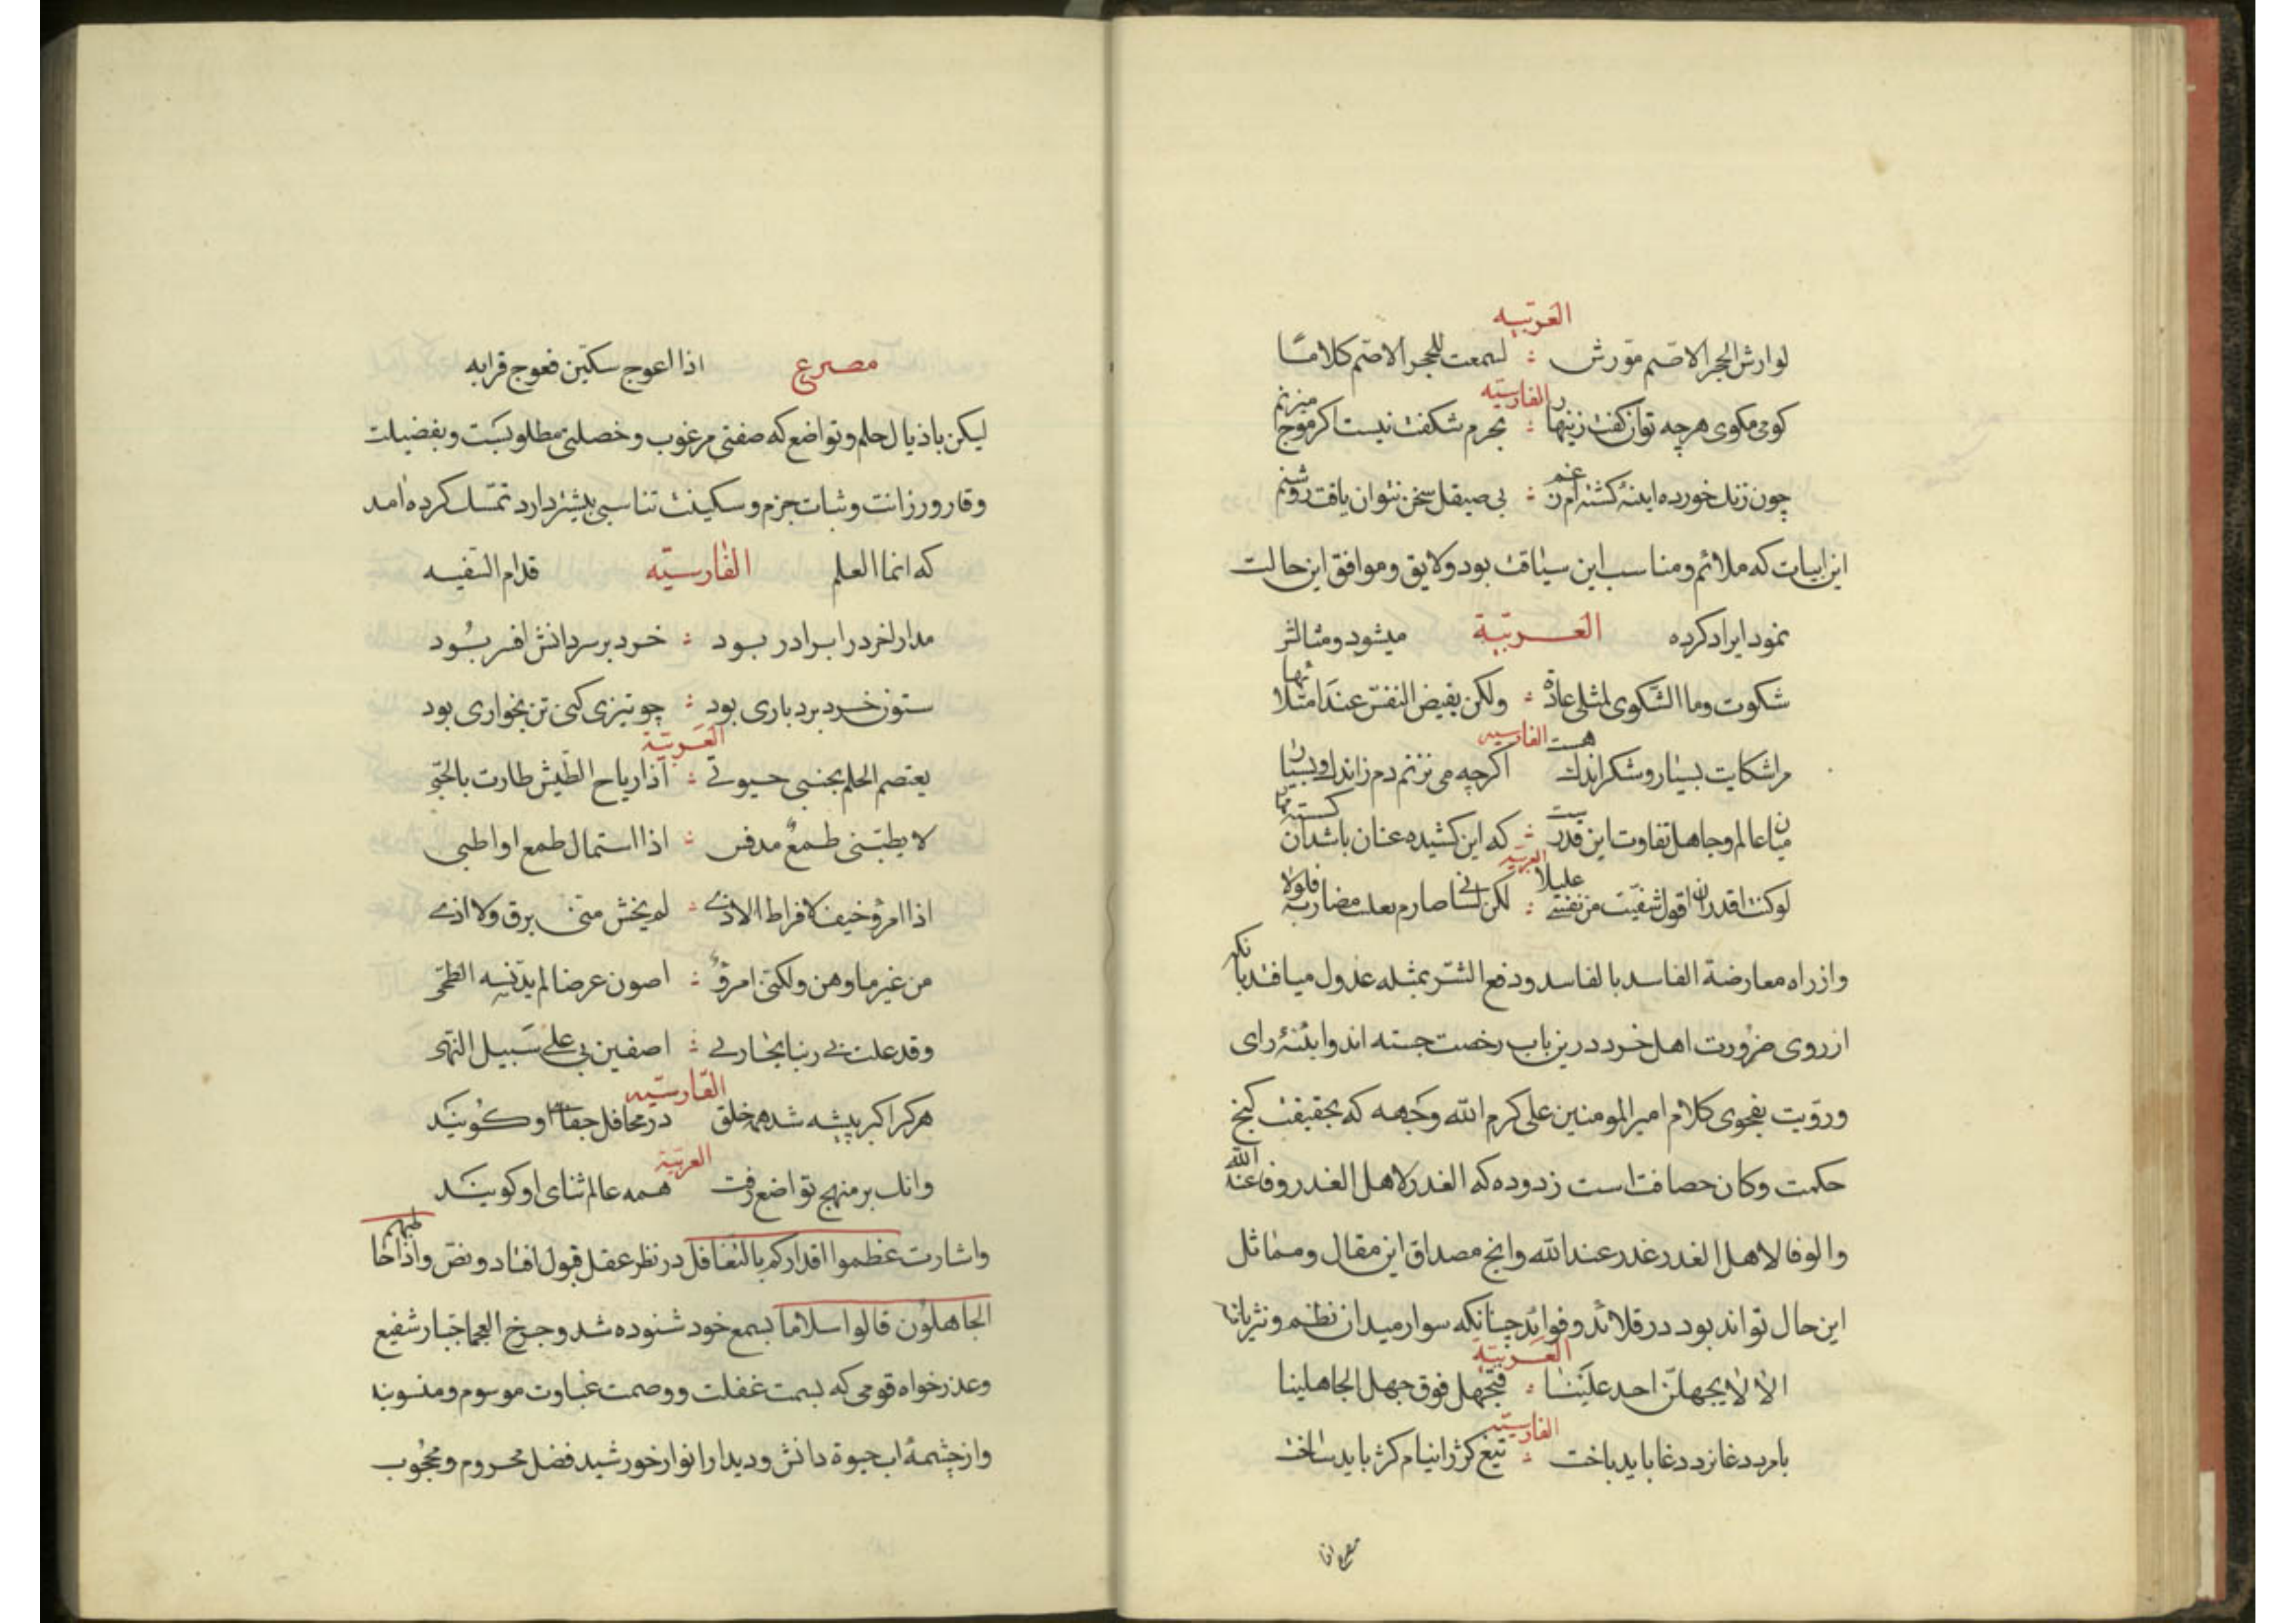 العربیه
لوارش الحجر الاصم مورش لسمعت للحجر الاصم کلاما
الفارسیه
کومی مکوی هرچه توان کفت زینهار بحرم شکفت نیست اکر موج میزنم
چون زنک خورده اینهٔ کشته‌ام ز غم بی صیقل سخن نتوان یافت روشنم
این ابیات که ملائم و مناسب این سیاقت بود و لایق و موافق این حالت
نمود ایراد کرده العربیة میشود و مثالش
شکوت وما الشکوی لمثلی عادة ولکن یفیض النفس عند امتلائها
الفارسیه
مرا شکایت بسیار و شکر اندک هست اکرچه می نزنم دم ز اندک و بسیار
میان عالم و جاهل تفاوت این قدرست که این کشیده عنان باشد ان کسسته مهار
العربیه
لو کنت اقدر ان اقول شفیت من نفسی علیلا لکن لسانی صارم مضاربه فلولا
واز راه معارضة الفاسد بالفاسد ودفع الشر بمثله عدول میافتد بانکه
از روی ضرورت اهل خرد درین باب رخصت جسته اند و اینهٔ رای
و رؤیت بفحوی کلام امیر المومنین علی کرم الله وجهه که بحقیقت کنج
حکمت وکان حصافت است زدوده که الغدر لاهل الغدر وفا عند الله
والوفا لاهل الغدر غدر عند الله وانج مصداق این مقال و مماثل
این حال تواند بود در قلائد و فوائد چنانکه سوار میدان نظم و نثر یانها
العربیة
الا لا یجهلن احد علینا فنجهل فوق جهل الجاهلینا
الفارسیه
بامرد دغا نرد دغا باید باخت تیغ کژ را نیام کژ باید ساخت
مصرع اذا
مصرع اذا اعوج سکین فعوج قرابه
لیکن باذیال حلم و تواضع که صفتی مرغوب و خصلتی مطلوبست و بفضیلت
وقار و رزانت و ثبات جزم و سکینت تناسبی بیشتر دارد تمسک کرده امد
که انما العلم الفارسیه قدام السفیه
مدارا خرد را برادر بود خرد بر سر دانش افسر بود
ستون خرد بردباری بود چو تیزی کنی تن بخواری بود
العربیة
یعتصم الحلم بجنبی حبوتی اذا ریاح الطیش طارت بالحبی
لا یطبینی طمع مدنس اذا استمال طمع او اطبی
اذا امرؤ خیف لافراط الاذی لم یخش منی برق ولا اذی
من غیر ما وهن ولکنی امرؤ اصون عرضا لم یدنسه الطخی
وقد علت بی رتبا تجاربی اصفین بی علی سبیل النهی
الفارسیه
هرکرا کبر پیشه شد همه خلق در محافل جفای او کویند
وانک بر منهج تواضع رفت همه عالم ثنای او کویند
العربیة
و اشارت عظموا اقدارکم بالتغافل در نظر عقل قبول افتاد و نص واذا خاطبهم
الجاهلون قالوا سلاما بسمع خود شنوده شد و جرح العجما جبار شفیع
و عذر خواه قومی که بسمت غفلت و وصمت غباوت موسوم و منسوبند
و از چشمهٔ اب حیوة دانش و دیدار انوار خورشید فضل محروم و محجوب